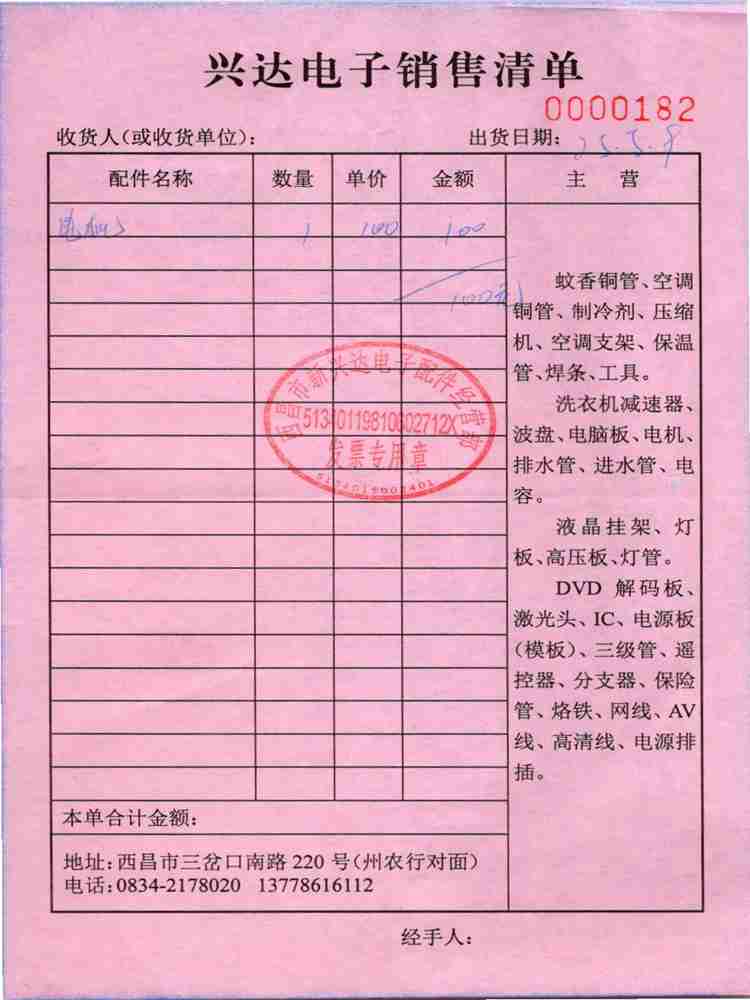 兴达电子销售清单
0000182
收货人(或收货单位): 出货日期: 25.5.9
配件名称 数量 单价 金额 主 营
1 100 100
100元
蚊香铜管、空调
铜管、制冷剂、压缩
机、空调支架、保温
管、焊条、工具。
洗衣机减速器、
波盘、电脑板、电机、
排水管、进水管、电
容。
液晶挂架、灯
板、高压板、灯管。
DVD 解码板、
激光头、IC、电源板
(模板)、三级管、遥
控器、分支器、保险
管、烙铁、网线、AV
线、高清线、电源排
插。
西昌市新兴达电子配件经营部
51340119810602712X
发票专用章
本单合计金额:
地址:西昌市三岔口南路 220 号(州农行对面)
电话:0834-2178020 13778616112
经手人: